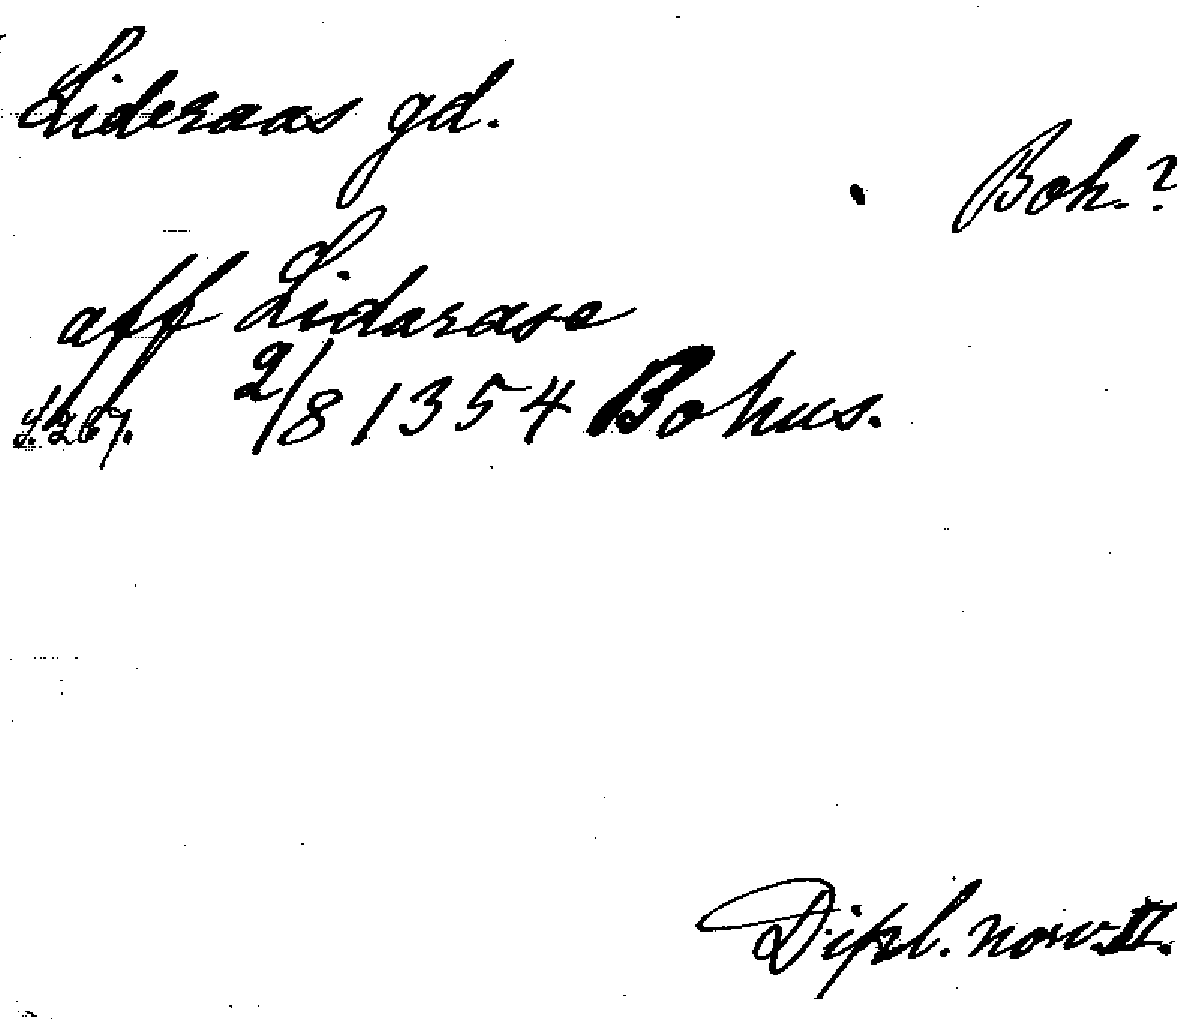 Lideraas gd.
Boh.?
aff Lidarase
s. 267. 2/8 1354 Bohus.
Dipl. norv. II.